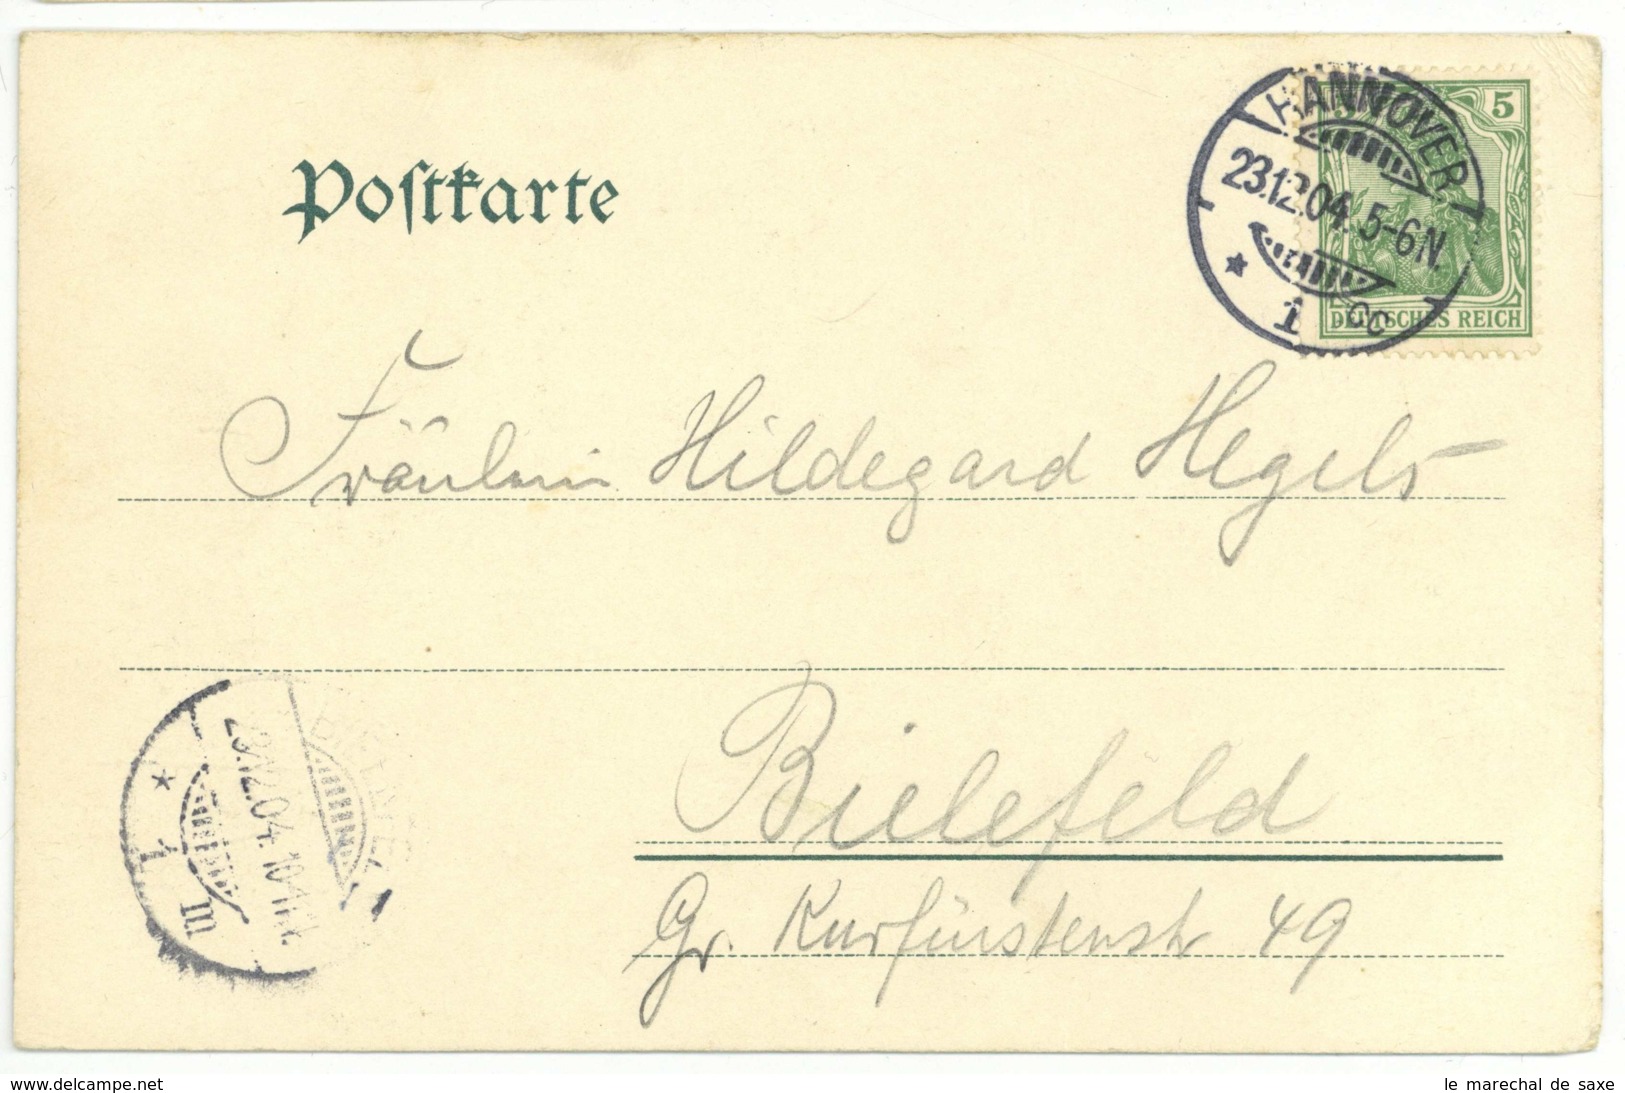 Postkarte
5
HANNOVER
23.12.04. 5-6N.
* 1 cc
DEUTSCHES REICH
Fräulein Hildegard Hegels
Bielefeld
Gr. Kurfürstenstr 49
23.12.04. 10-11N.
* 1 m
www.delcampe.net
le marechal de saxe